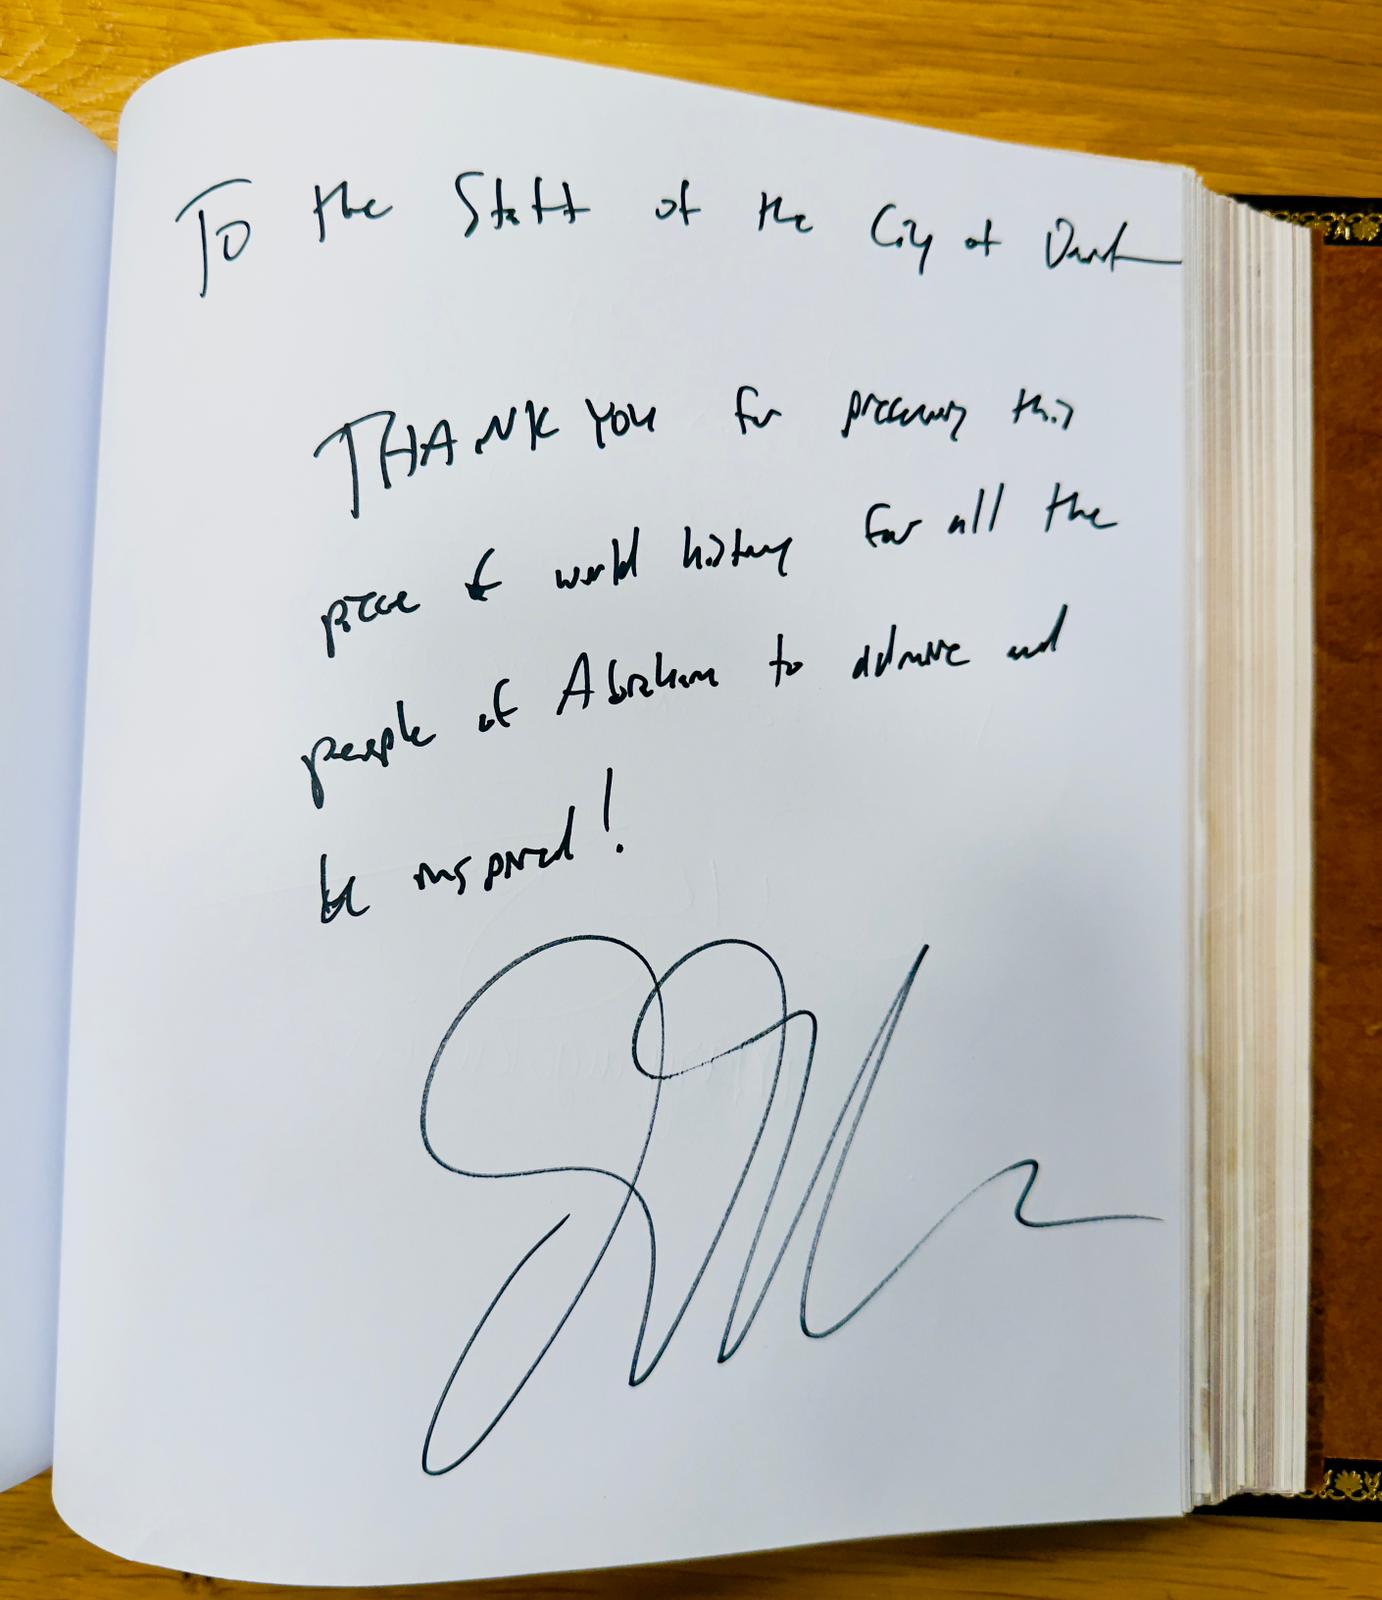 To the Staff of the City of David
THANK YOU for preserving this
piece of world history for all the
people of Abraham to admire and
be inspired!